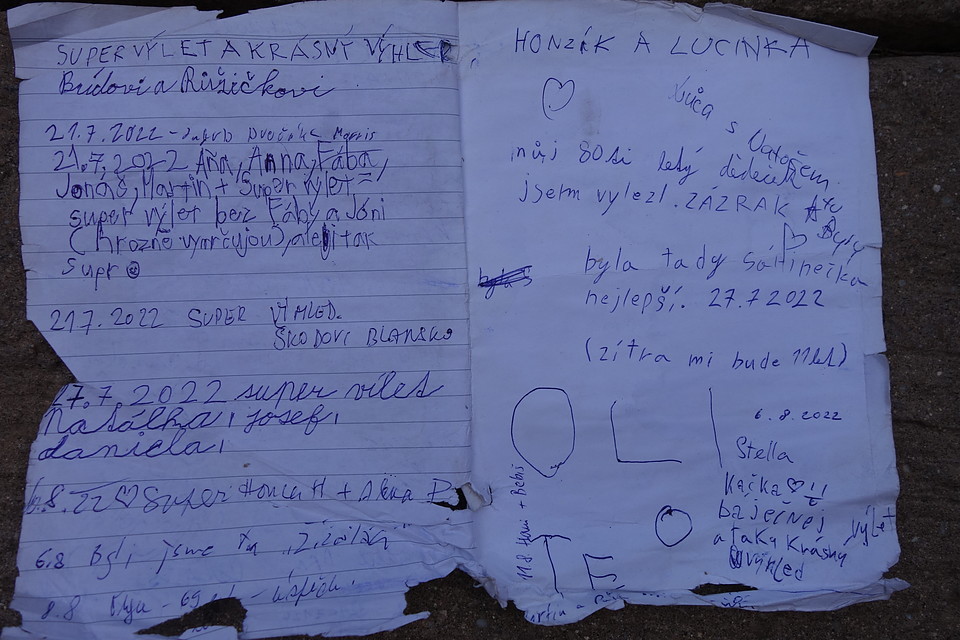 SUPER VÝLET A KRÁSNÝ VÝHLED
Búdovi a Růžičkovi
21.7.2022 - Dvořák Morris
21.7.2022 Áňa, Anna, Fába,
Jonáš, Martin + Super výlet =,
super výlet bez Fáby a Jóni
(hrozně vyrčujou), ale i tak
supr
21.7.2022 SUPER VÝHLED.
ŠKODOVI BLANSKO
27.7.2022 super vílet
Natálka, josef,
daniela,
6.8.22 Super Honca H + Alena P.
6.8 Byli jsme tu
8.8
HONZÍK A LUCINKA
Lůča
s
můj 80 ti letý dědeček
jsem vylezl. ZÁZRAK
byla tady
nejlepší. 27.7 2022
(zítra mi bude 11 let)
OLI
6.8.2022
Stella
Kačka
báječnej výlet
a taky krásný
výhled
11.8 + Bebiš
TE